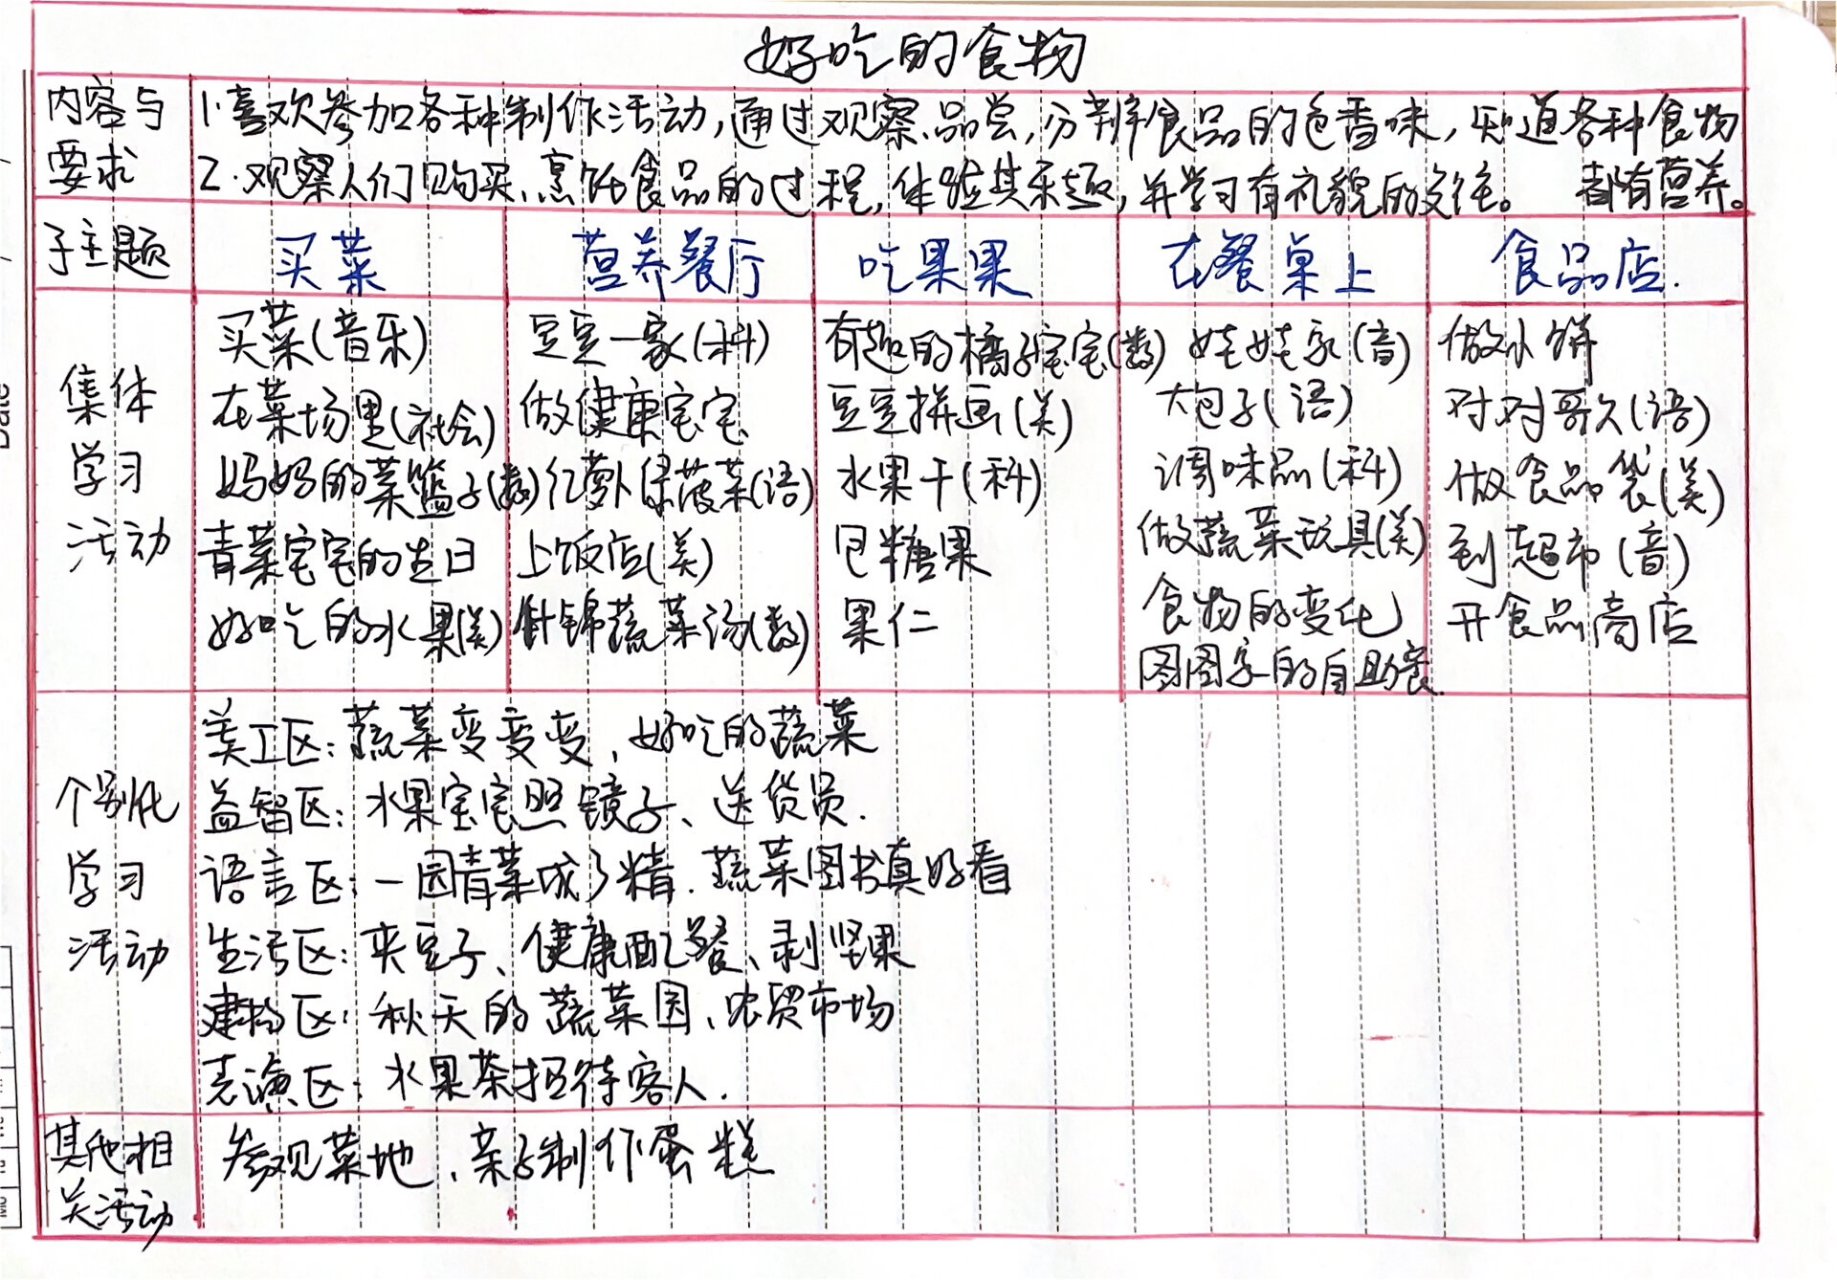 好吃的食物
内容与要求
1.喜欢参加各种制作活动,通过观察、品尝,分辨食品的色香味,知道各种食物都有营养。
2.观察人们购买、烹饪食品的过程,体验其乐趣,并学习有礼貌的交往。
子主题 买菜 营养餐厅 吃果果 在餐桌上 食品店.
集体学习活动
买菜(音乐)
在菜场里(社会)
妈妈的菜篮子(数)
青菜宝宝的生日
好吃的水果(美)
豆豆一家(科)
做健康宝宝
红萝卜绿菠菜(语)
上饭店(美)
什锦蔬菜汤(数)
有趣的橘子宝宝(数)
豆豆拼画(美)
水果干(科)
包糖果
果仁
娃娃家(音)
大包子(语)
调味品(科)
做蔬菜玩具(美)
食物的变化
图图家的自助餐
做小饼
对对哥久(语)
做食品袋(美)
到超市(音)
开食品商店
个别化学习活动
美工区:蔬菜变变变、好吃的蔬菜
益智区:水果宝宝照镜子、送货员.
语言区:一园青菜成了精.蔬菜图书真好看
生活区:夹豆子、健康配餐、剥坚果
建构区:秋天的蔬菜园、农贸市场
表演区:水果茶招待客人.
其他相关活动
参观菜地、亲子制作蛋糕